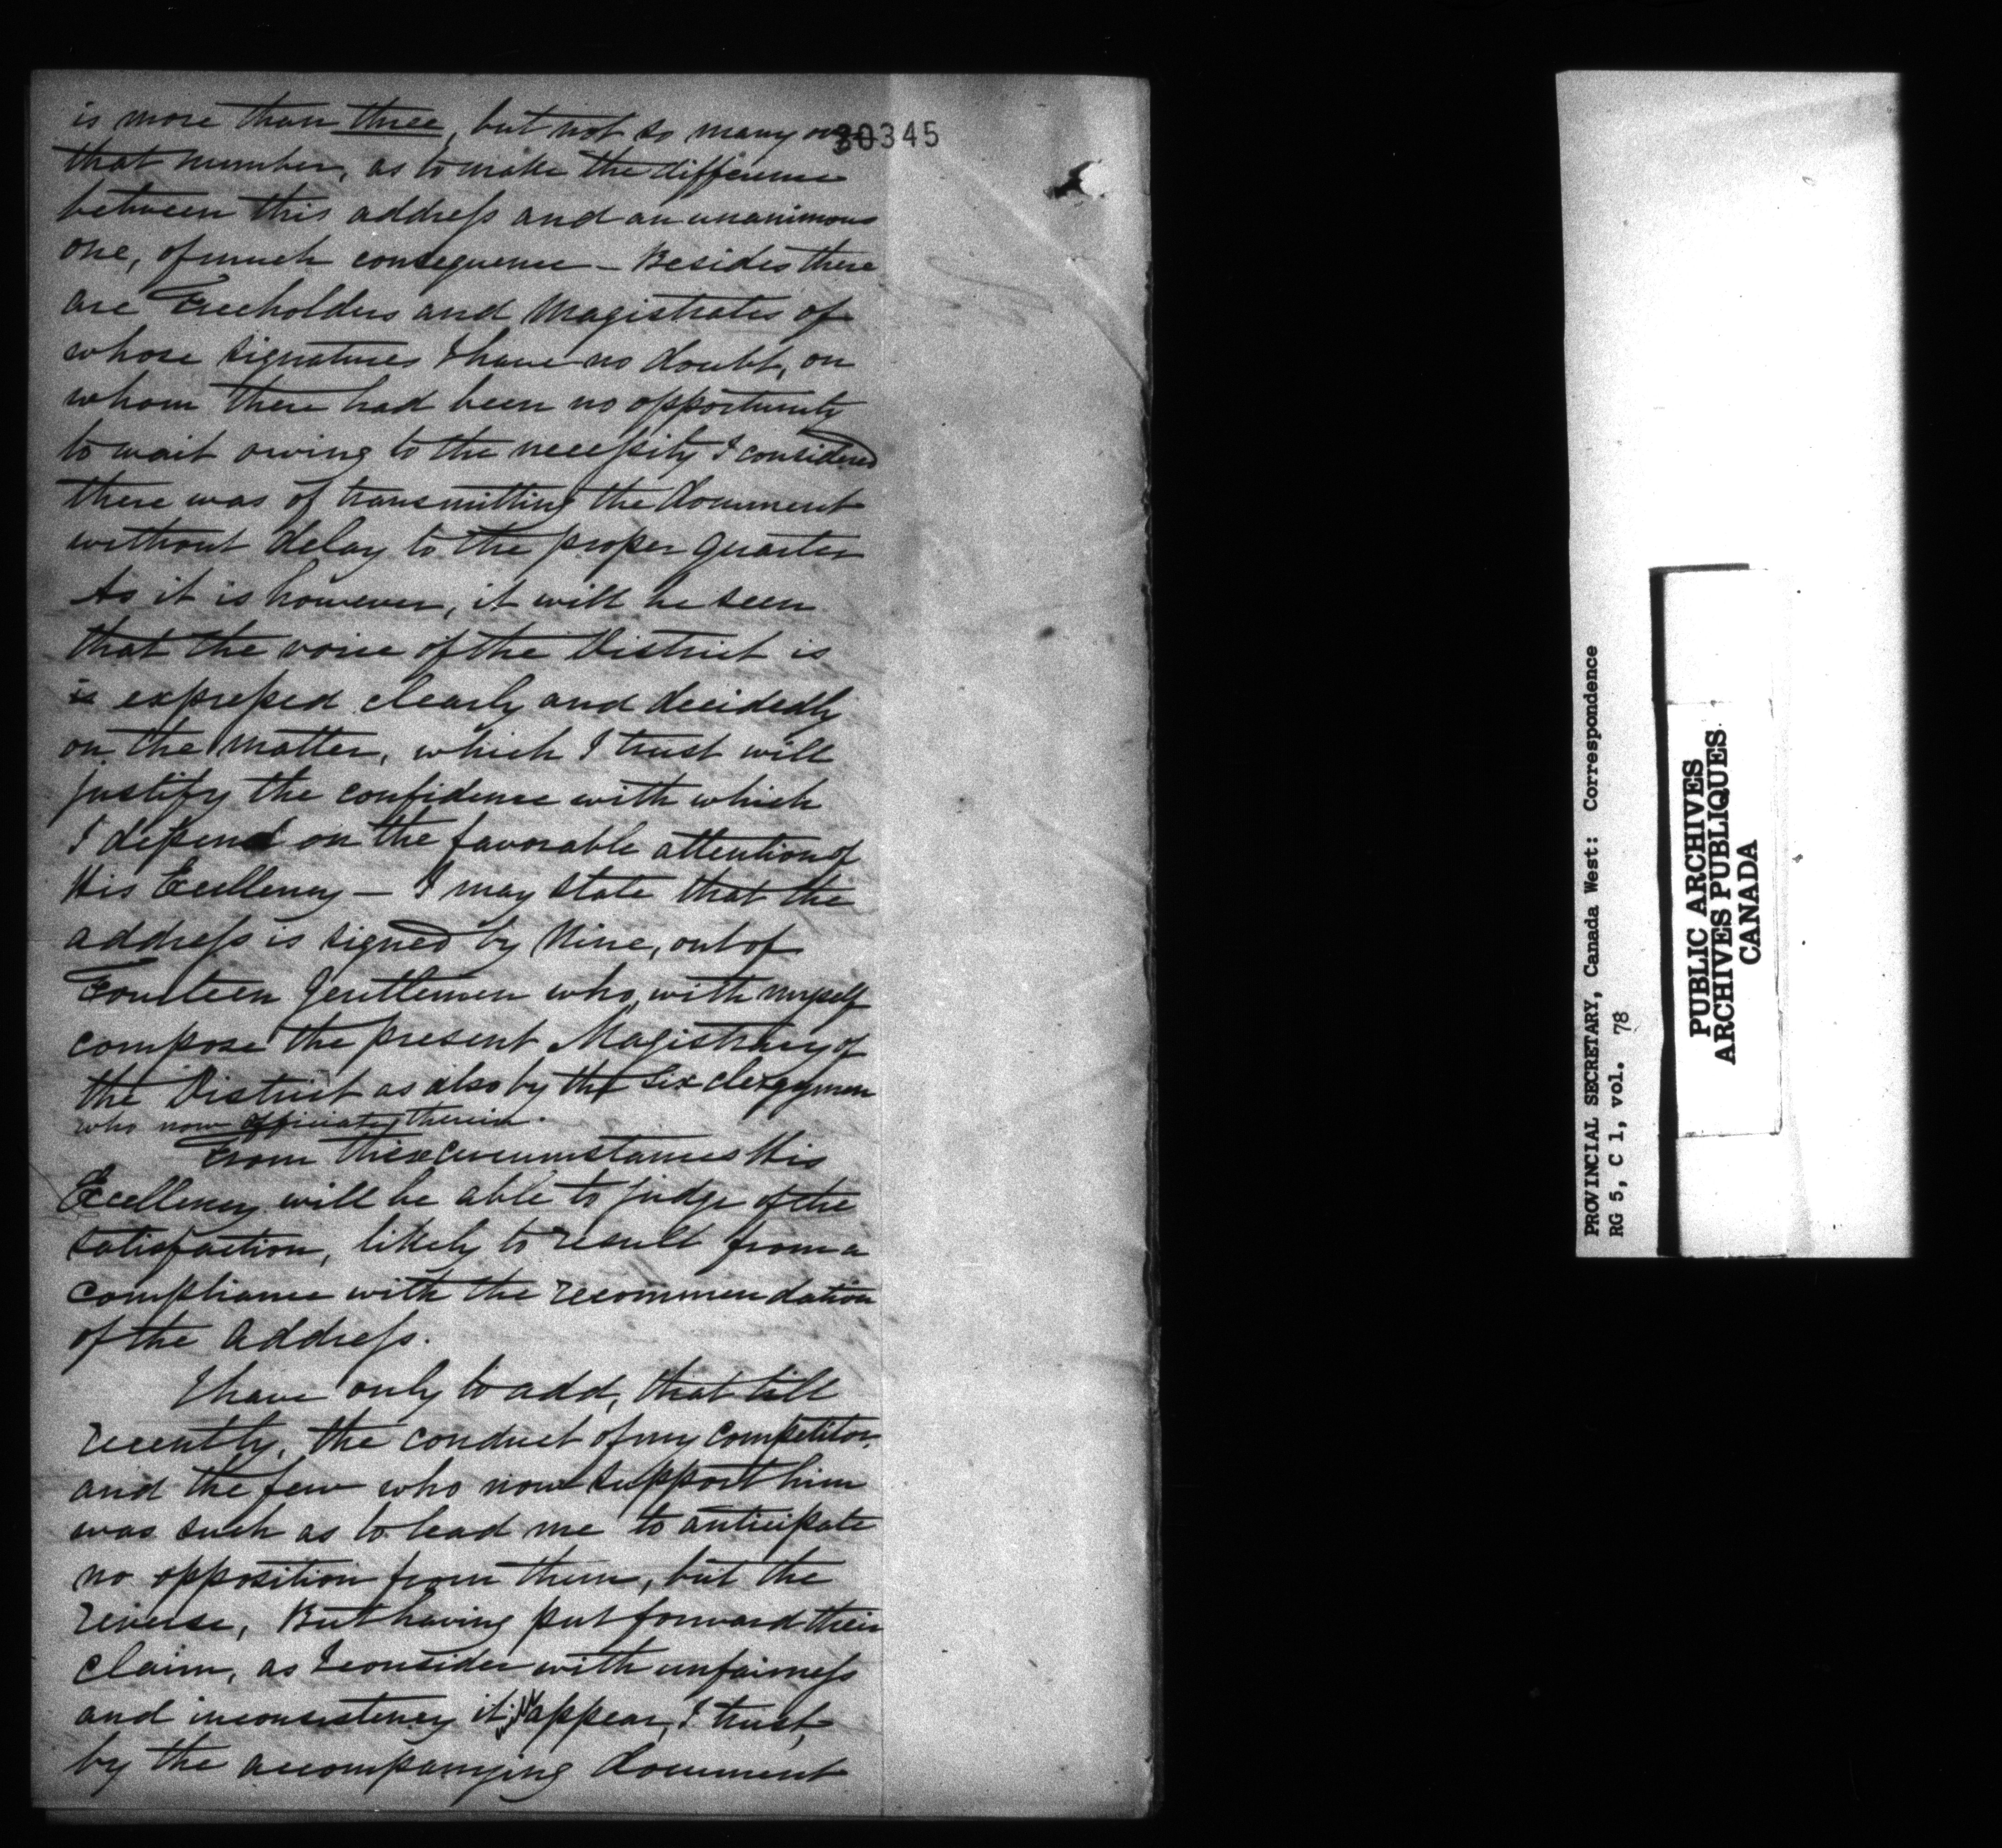 30345
is more than three, but not so many over
that number, as to make the difference
between this address and an unanimous
one, of much consequence – Besides there
are Freeholders and Magistrates of
whose signatures I have no doubt, on
whom there had been no opportunity
to wait owing to the necessity I considered
there was of transmitting the document
without delay to the proper quarter
As it is however, it will be seen
that the voice of the District is
is expressed clearly and decidedly
on the matter, which I trust will
justify the confidence with which
I depend on the favorable attention of
His Excellency – I may state that the
address is signed by Nine, out of
Fourteen Gentlemen who, with myself
compose the present Magistracy of
the District as also by the six clergymen
who now officiate therein.
From these circumstances His
Excellency will be able to judge of the
satisfaction, likely to result from a
compliance with the recommendation
of the Address.
I have only to add, that till
recently, the conduct of my competitor,
and the few who now support him
was such as to lead me to anticipate
no opposition from them, but the
reverse, But having put forward their
claim, as I consider with unfairness
and inconsistency it appear, I trust,
by the accompanying document
PROVINCIAL SECRETARY, Canada West: Correspondence
RG 5, C 1, vol. 78
PUBLIC ARCHIVES
ARCHIVES PUBLIQUES
CANADA